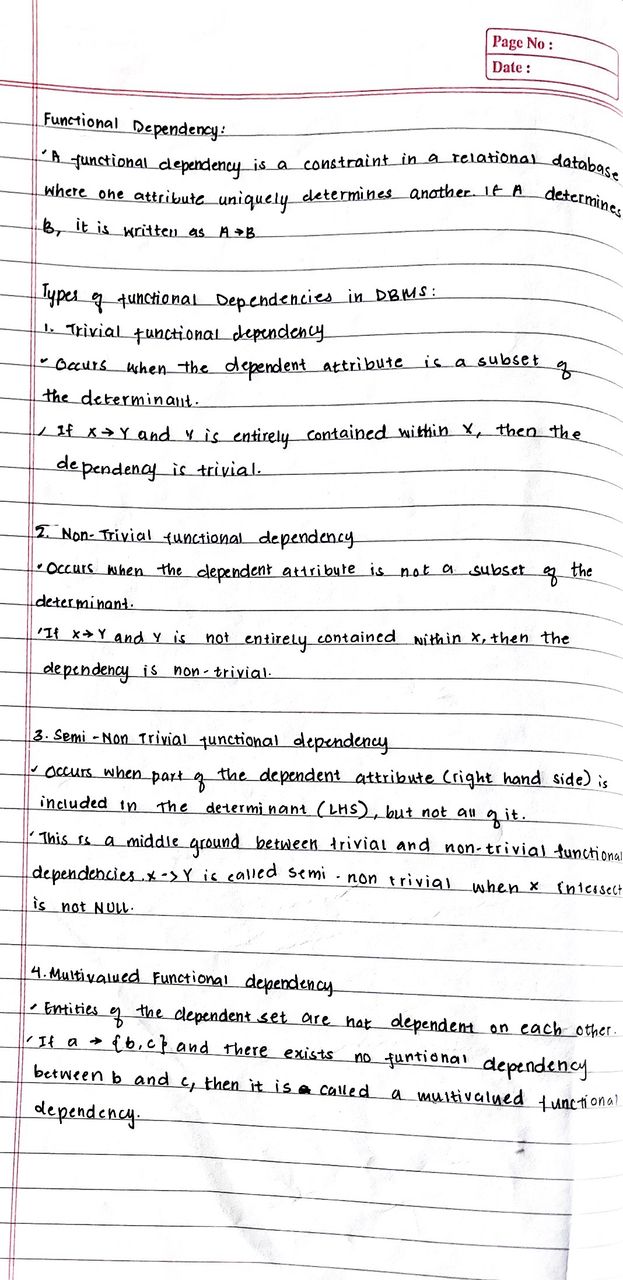 Page No :
Date :
Functional Dependency:
• A functional dependency is a constraint in a relational database
where one attribute uniquely determines another. If A determines
B, it is written as A→B
Types of functional Dependencies in DBMS:
1. Trivial functional dependency
• Occurs when the dependent attribute is a subset of
the determinant.
• If X→Y and Y is entirely contained within X, then the
dependency is trivial.
2. Non-Trivial functional dependency
• Occurs when the dependent attribute is not a subset of the
determinant.
• If X→Y and Y is not entirely contained within X, then the
dependency is non-trivial.
3. Semi-Non Trivial functional dependency
• Occurs when part of the dependent attribute (right hand side) is
included in the determinant (LHS), but not all of it.
• This is a middle ground between trivial and non-trivial functional
dependencies. X->Y is called semi-non trivial when X intersect
is not NULL.
4. Multivalued Functional dependency
• Entities of the dependent set are not dependent on each other.
• If a → {b,c} and there exists no funtional dependency
between b and c, then it is called a multivalued functional
dependency.